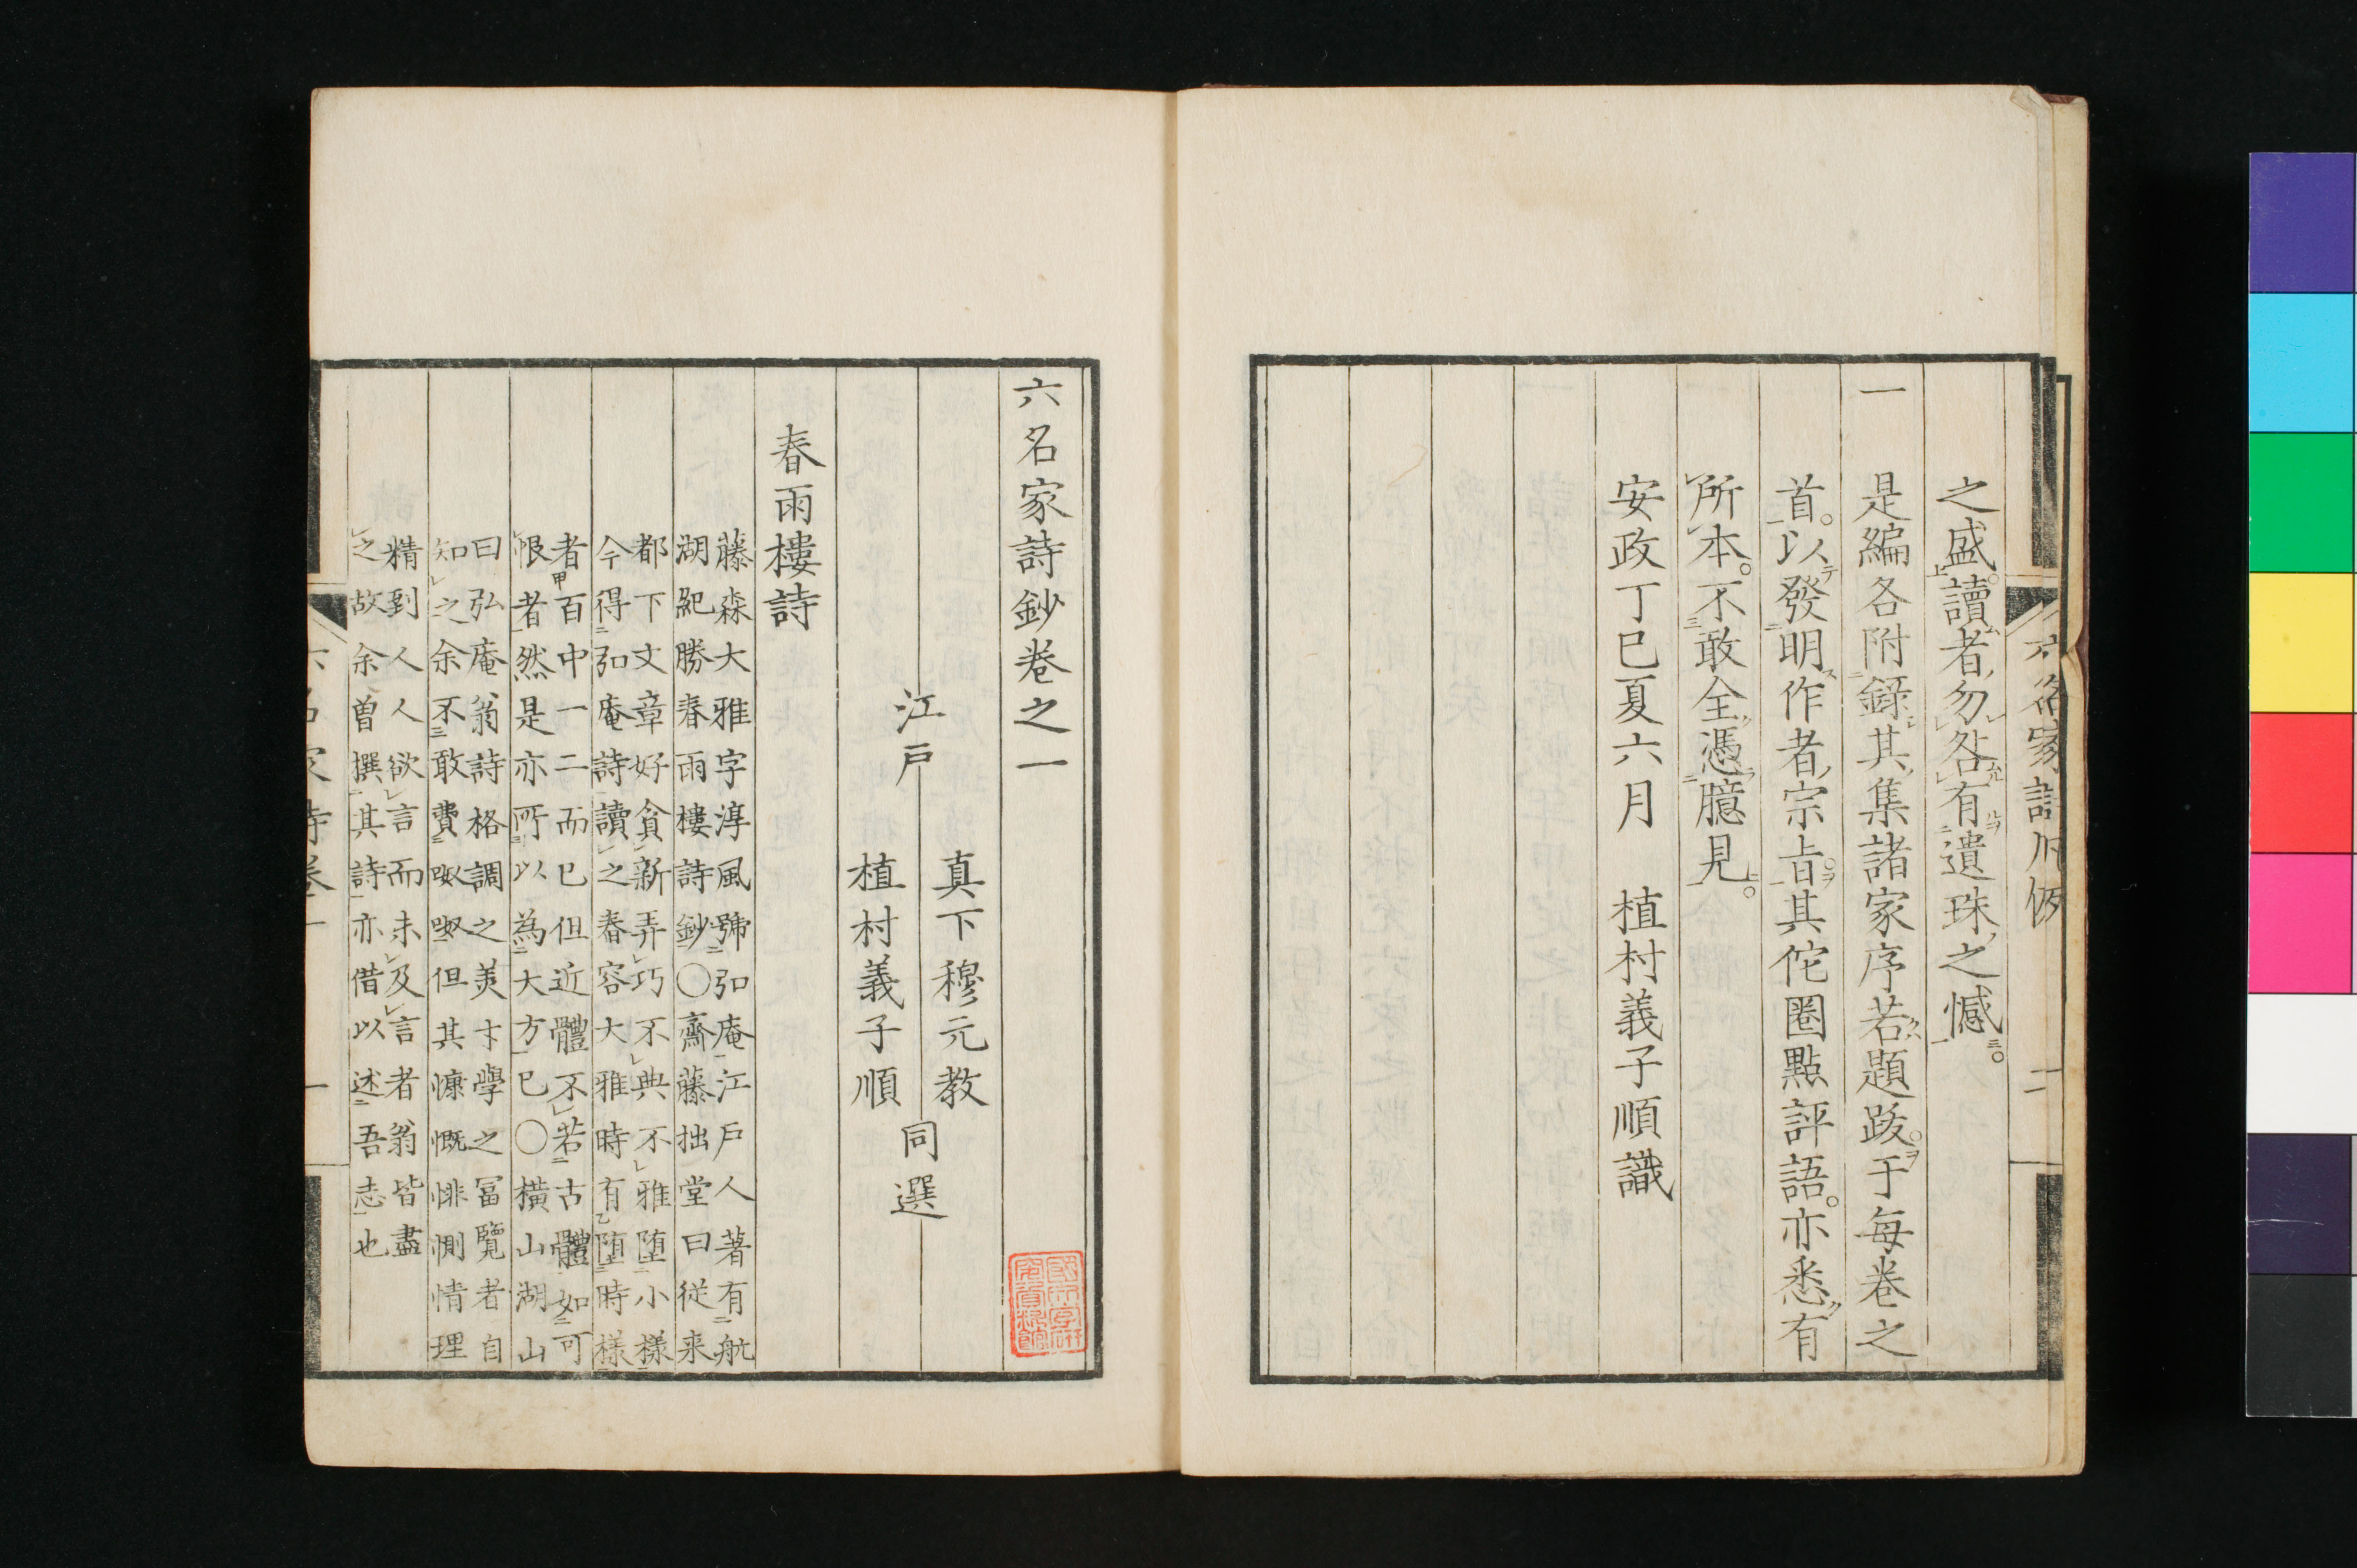 之盛讀者勿咎有遺珠之憾
一 是編各附錄其集諸家序若題跋于每卷之
首以發明作者宗旨其佗圈點評語亦悉有
所本不敢全憑臆見
安政丁巳夏六月 植村義子順識
六名家詩鈔卷之一
江戶
真下穆元教
植村義子順
同選
春雨樓詩
藤森大雅字淳風號弘庵江戶人著有航
湖紀勝春雨樓詩鈔〇齋藤拙堂曰従来
都下文章好貪新弄巧不典不雅堕小樣
今得弘庵詩讀之春容大雅時有堕時樣
者百中一二而已但近體不若古體如可
恨者然是亦所以為大方已〇橫山湖山
曰弘庵翁詩格調之美才學之冨覽者自
知之余不敢費呶呶但其慷慨悱惻情理
精到人人欲言而未及言者翁皆盡
之故余曽撰其詩亦借以述吾志也